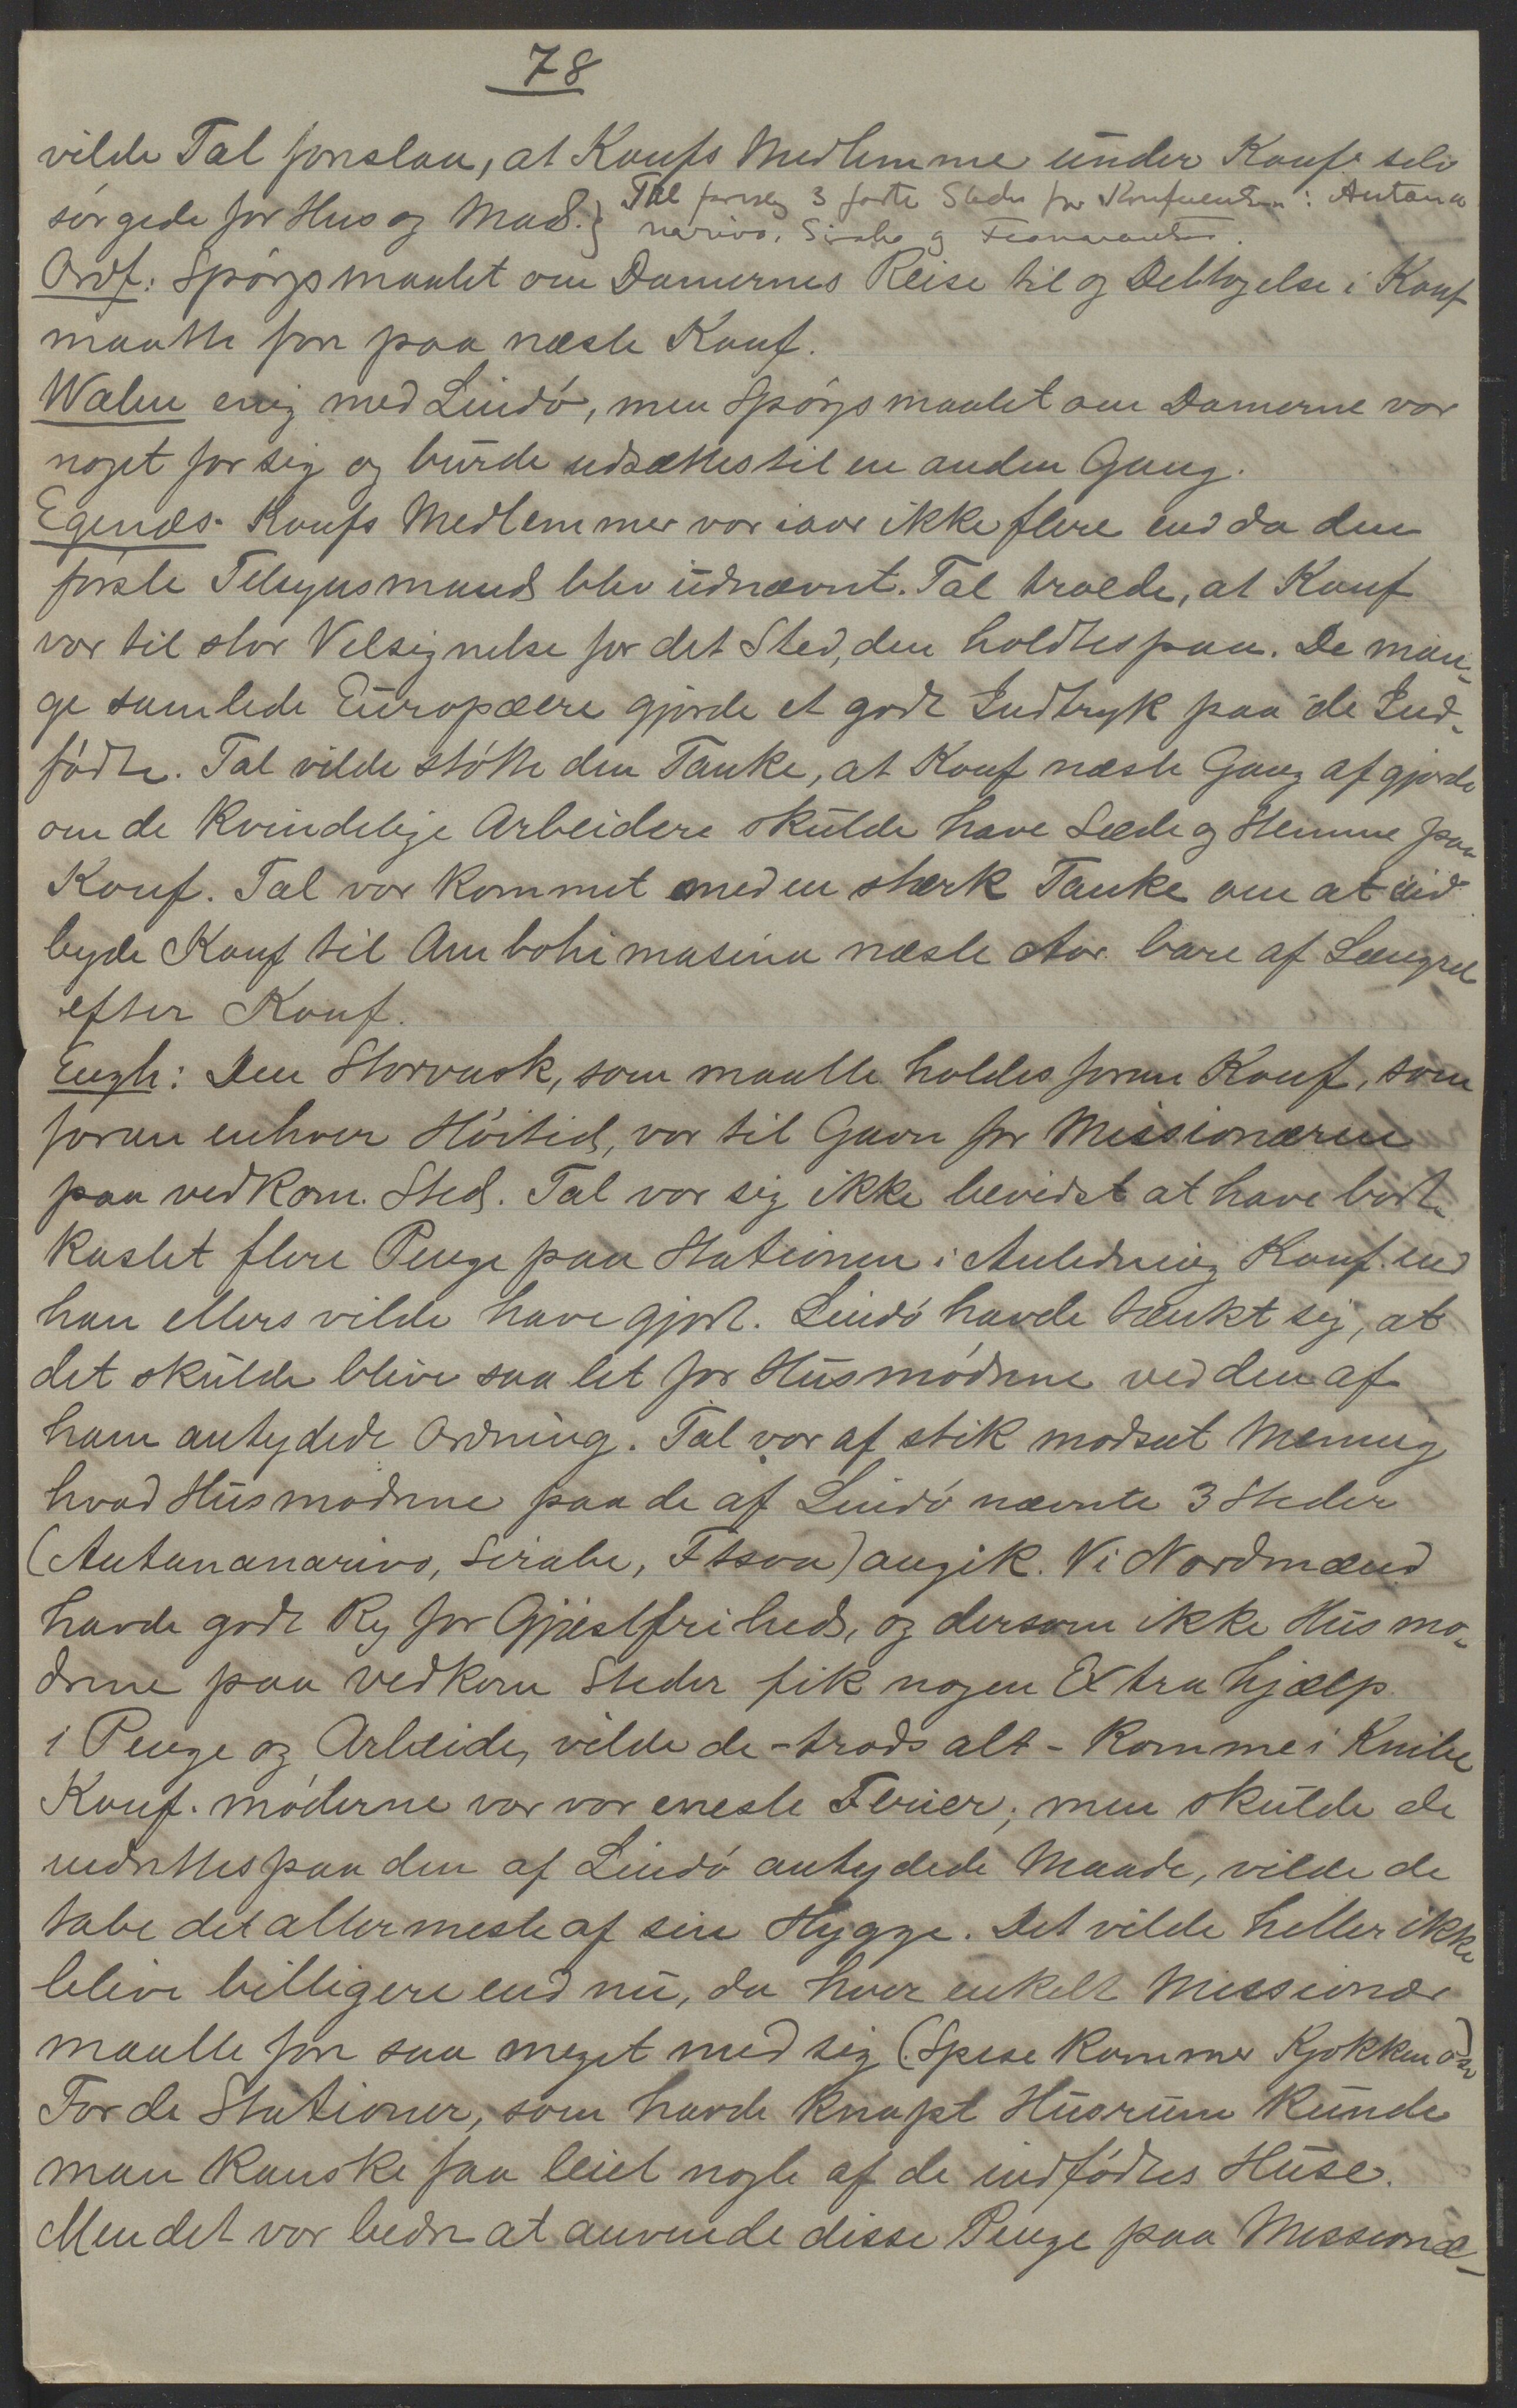 78
vilde Tal foreslaa, at Konfs Medlemmer under Konf. selv
sørgede for Hus og Mad.} Tal foreslog 3 faste Steder for Konferentsen: Antana
narivo, Sirabe og Fianarantsoa.
Ordf: Spørgsmaalet om Damernes Reise til og Deltagelse i Konf
maatte for paa næste Konf.
Walen enig med Lindø, men Spørgsmaalet om Damerne var
noget for sig og burde udsættes til en anden Gang.
Egenæs. Konfs Medlemmer var iaar ikke flere end da den
første Tilsynsmand blev udnævnt. Tal troede, at Konf
var til stor Velsignelse for det Sted, den holdtes paa. De man-
ge samlede Europæere gjorde et godt Indtryk paa de Ind-
fødte. Tal vilde støtte den Tanke, at Konf næste Gang afgjorde
om de kvindelige Arbeidere skulde have Sæde og Stemme paa
Konf. Tal var kommet med en stærk Tanke om at ind
byde Konf til Ambohimasina næste Aar bare af Længsel
efter Konf.
Engh: Den Storvask, som maatte holdes foran Konf, som
foran enhver Høitid, var til Gavn for Missionæren
paa vedkom. Sted. Tal var sig ikke bevidst at have bort-
kastet flere Penge paa Stationen i Anledning Konf. end
han ellers vilde have gjort. Lindø havde tænkt sig, at
det skulde blive saa let for Husmødrene ved den af
ham antydede Ordning. Tal var af stik modsat Mening
hvad Husmødrene paa de af Lindø nævnte 3 Steder
(Antananarivo, Sirabe, Ftsoa) angik. Vi Nordmænd
havde godt Ry for Gjæstfrihed, og dersom ikke Husmø-
drene paa vedkom Steder fik nogen Extra hjælp
i Penge og Arbeide, vilde de - trods alt - komme i Knibe
Konf. møderne var vor eneste Ferier; men skulde de
indrettes paa den af Lindø antydede Maade, vilde de
tabe det allermeste af sin Hygge. Det vilde heller ikke
blive billigere end nu, da hver enkelt Missionær
maatte føre saa meget med sig (Spise kammer Kjøkken osv)
For de Stationer, som havde knapt Husrum kunde
man kanske faa leiet nogle af de indfødtes Huse.
Men det var bedre at anvende disse Penge paa Missionæ-